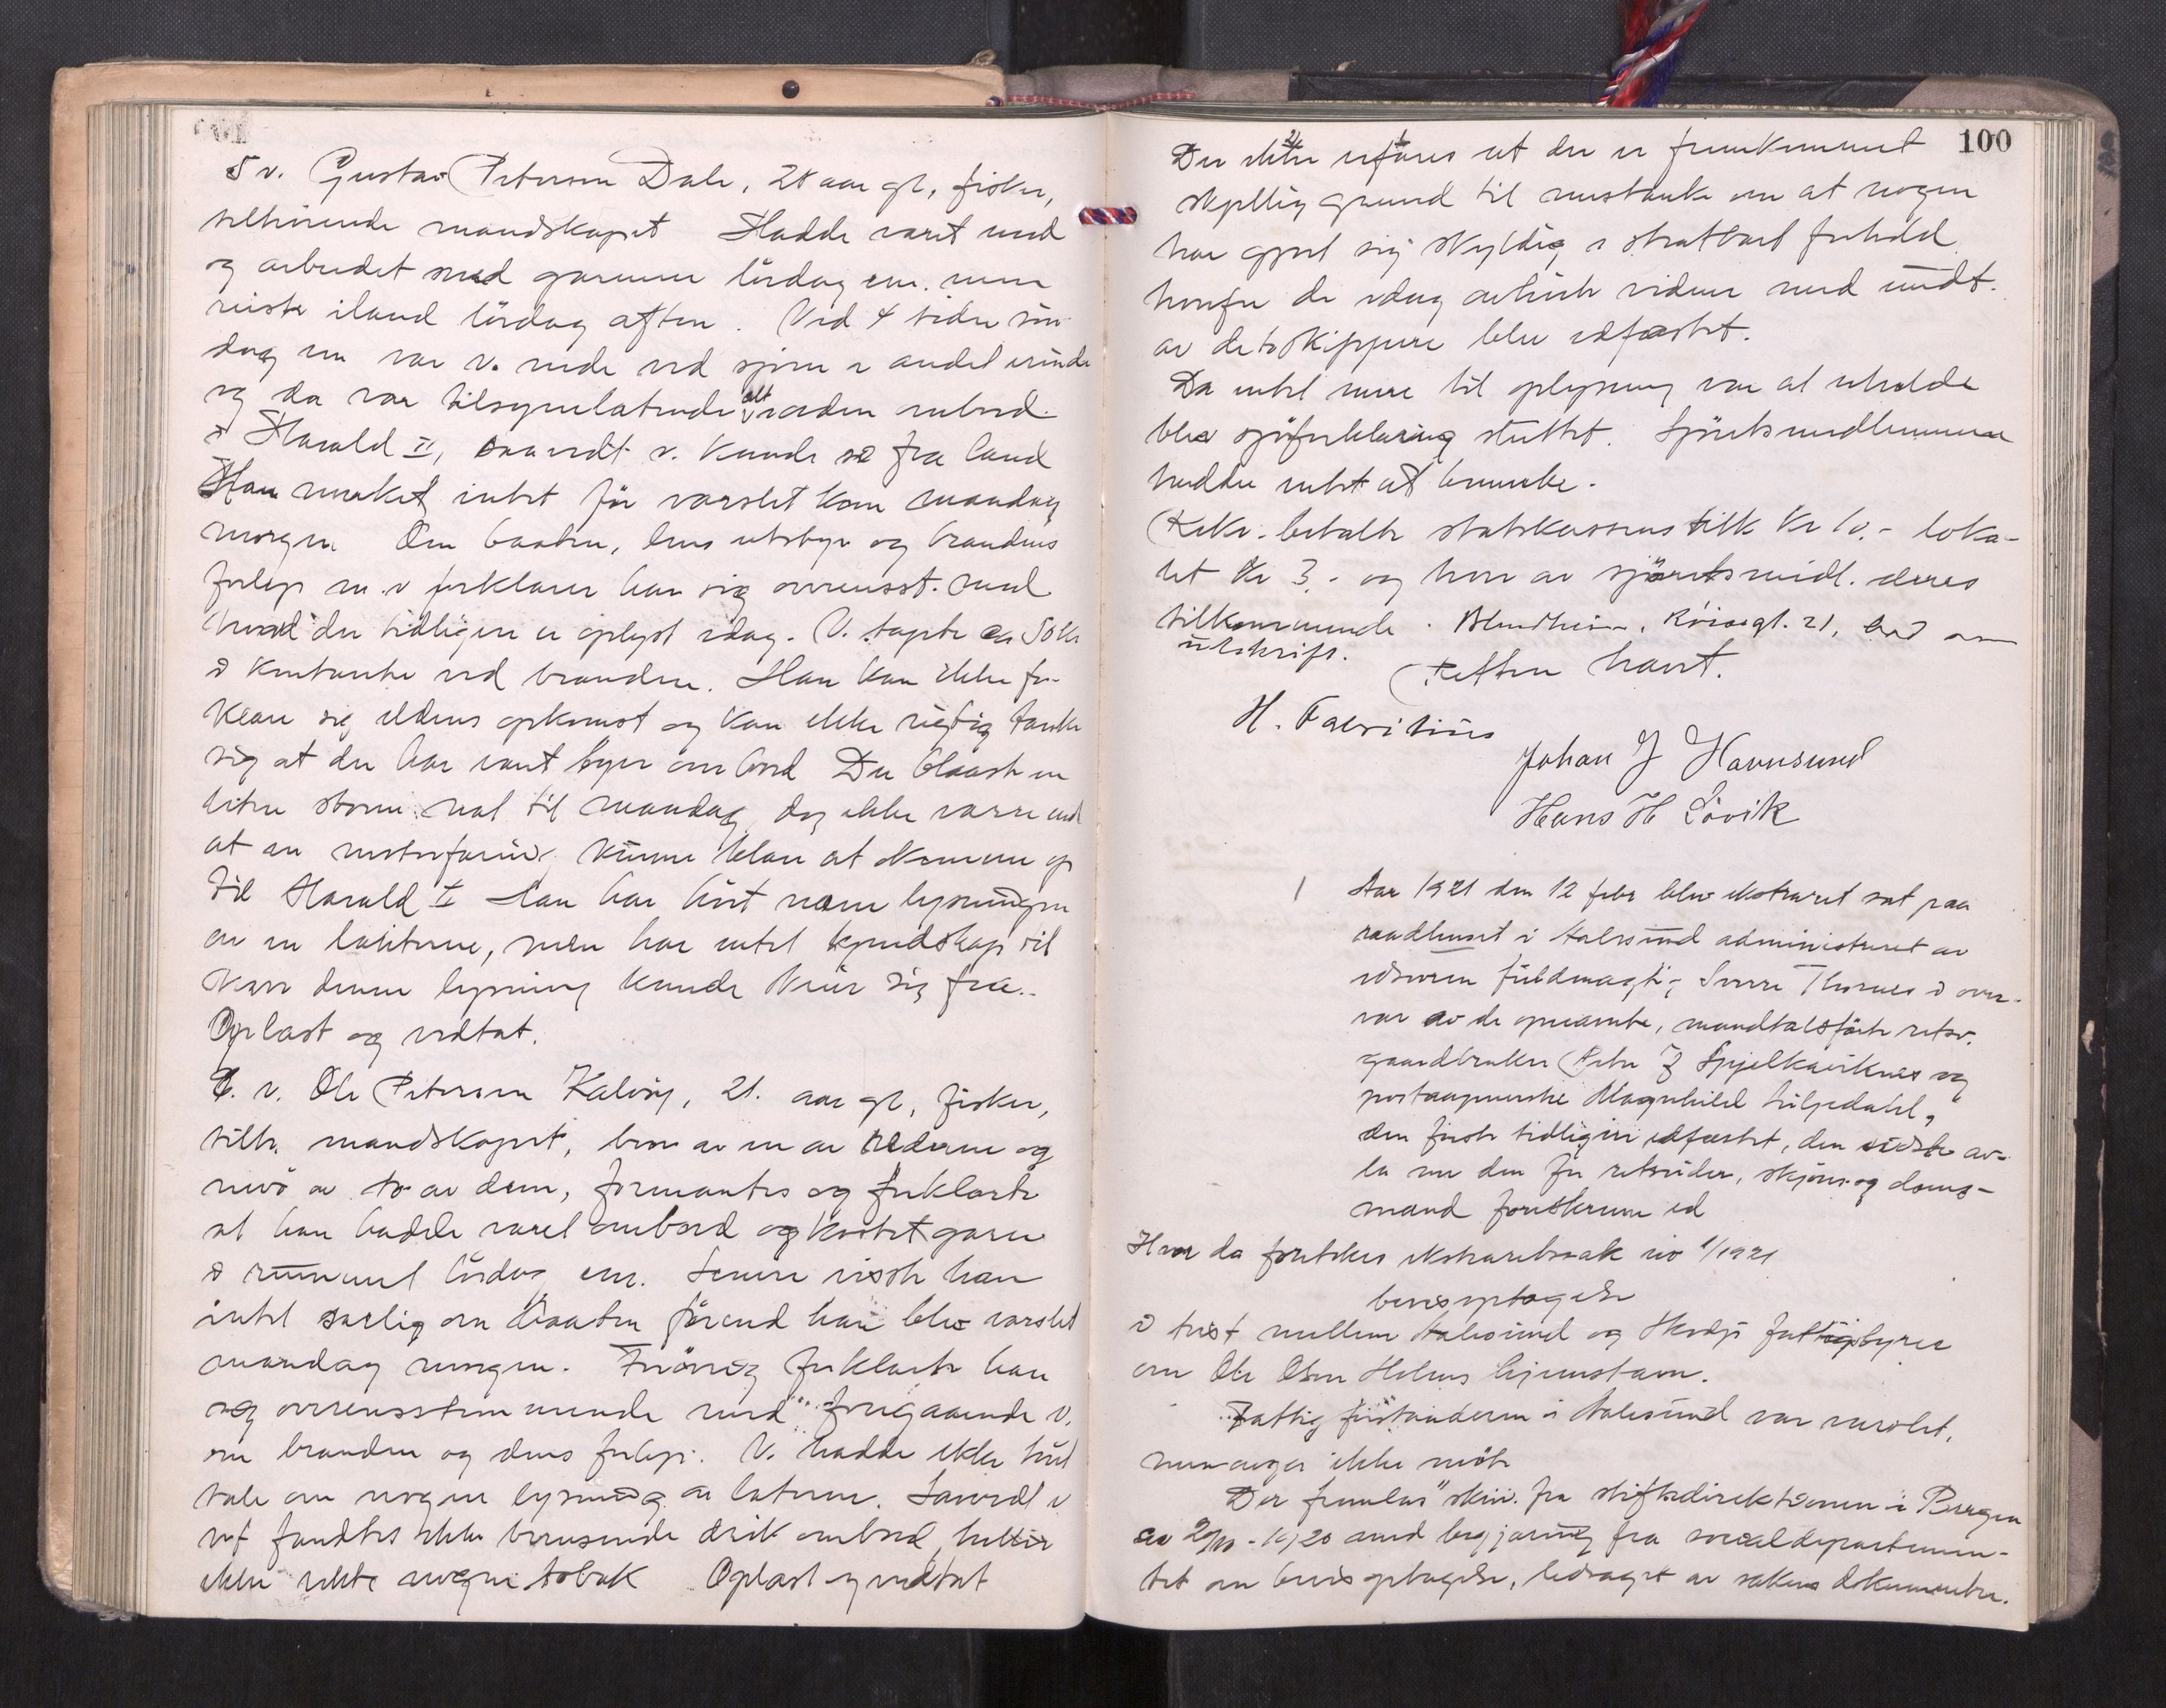 5 v. Gustav Peterson Dale, 28 aar gl, fisker,
tilhörende mandskapet Hadde været med
og arbeidet med garnene lördag em. men
reiste iland lördag aften. Ved 4 tiden sön-
dag em var v. nede ved sjöen i andet erinde
og da var tilsynelatende alt i orden ombord
i Harald II, saavidt v. kunde se fra land
Han merket intet för varslet kom mandag
morgen Om baaten, dens utstyr og brandens
forlöp m.v forklarer han sig overensst. med
hvad der tidligere er oplyst idag. V. tapte ca 50 kr
i kontanter ved branden. Han kan ikke for-
klare sig ildens opkomst og kan ikke rigtig tænke
sig at der har været tyver ombord Der blaaste en
liten storm nat til mandag, dog ikke værre end
at en motorfarer kunne klare at komme op
til Harald II Han har hört nævne lysningen
av en lanterne, men har intet kjendskap til
hvor denne lysning kunde skrive sig fra.
Oplæst og vedtat.
6. v. Ole Peterson Kalvöy, 21. aar gl, fisker,
tilh. mandskapet, bror av en av rederne og
nevö av to av dem, formantes og forklarte
at han hadde været ombord og kastet garn
i rummet lördag em. Senere visste han
intet særlig om baaten förend han blev varslet
mandag morgen. Forövrig forklarte han
sig overensstemmende med foregaaende v.
om branden og dens forlöp. V. hadde ikke hört
tale om nogen lysning av lanterne. Saavidt v
vet fandtes ikke berusende drik ombord, heller
ikke rökte nogen tobak Oplæst og vedtat
100
Der ikke 2) anföres 1) at der er fremkommet
skjellig grund til mistanke om at nogen
har gjort sig skyldig i strafbart forhold
hvorfor de idag avhörte vidner med undt.
av de to skippere blev edfæstet.
Da intet mere til oplysning var at erholde
blev sjöforklaring sluttet. Sjöretsmedlemmene
hadde intet at bemerke.
Rekv. betalte statskassens tilk Kr 10.- loka-
let Kr 3.- og hver av sjöretsmedl. deres
tilkommende. Blindheim, Röisegt. 21, bad om
utskrift.
Retten hævet.
H. Fabritius
Johan J Havnsund
Hans H Lövik
1 Aar 1921 den 12 febr blev ekstraret sat paa
raadhuset i Aalesund administreret av
edsvoren fuldmægtig Sverre Thornes i over-
vær av de opnævnte, mandtalsförte retsv.
gaardbruker Peter J Spjelkaviknes og
postaapnerske Magnhild Litjedahl,
den förste tidligere edfæstet, den sidste av-
la nu den for retsvidner, skjöns- og doms-
mænd foreskrevne ed
Hvor da foretokes ekstraretssak no 1/1921
bevisoptagelse
i tvist mellem Aalesund og Skodje fattigstyrer
om Ole Olsen Holms hjemstavn.
Fattigforstanderen i Aalesund var varslet,
men ingen ikke mötte
Der fremlas skriv. fra stiftsdirektionen i Bergen
av 20/10 - 1920 med begjæring fra socialdepartemen-
tet om bevisoptagelse, ledsaget av sakens dokumenter.